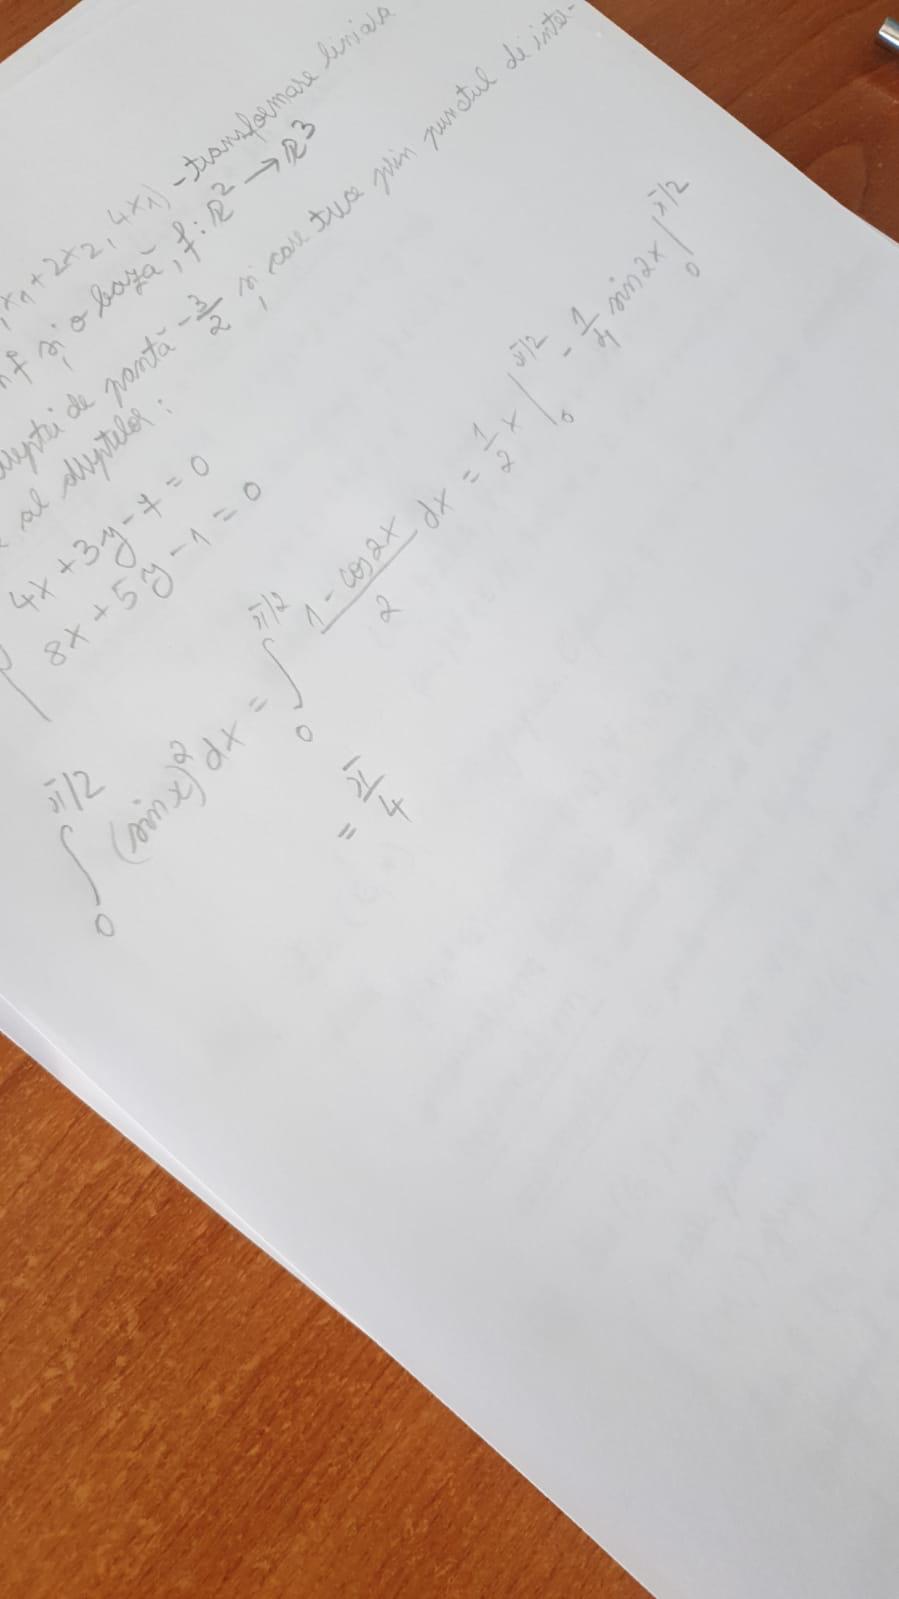 x₁+2x₂, 4x₁) - transformare liniară
f și o bază, f: ℝ² → ℝ³
dreptei de pantă -3/2 și care trece prin punctul de inte-
al dreptelor:
4x + 3y - 7 = 0
8x + 5y - 1 = 0
∫₀^(π/2) (sin x)² dx = ∫₀^(π/2) (1 - cos 2x)/2 dx = 1/2 x |₀^(π/2) - 1/4 sin 2x |₀^(π/2)
= π/4